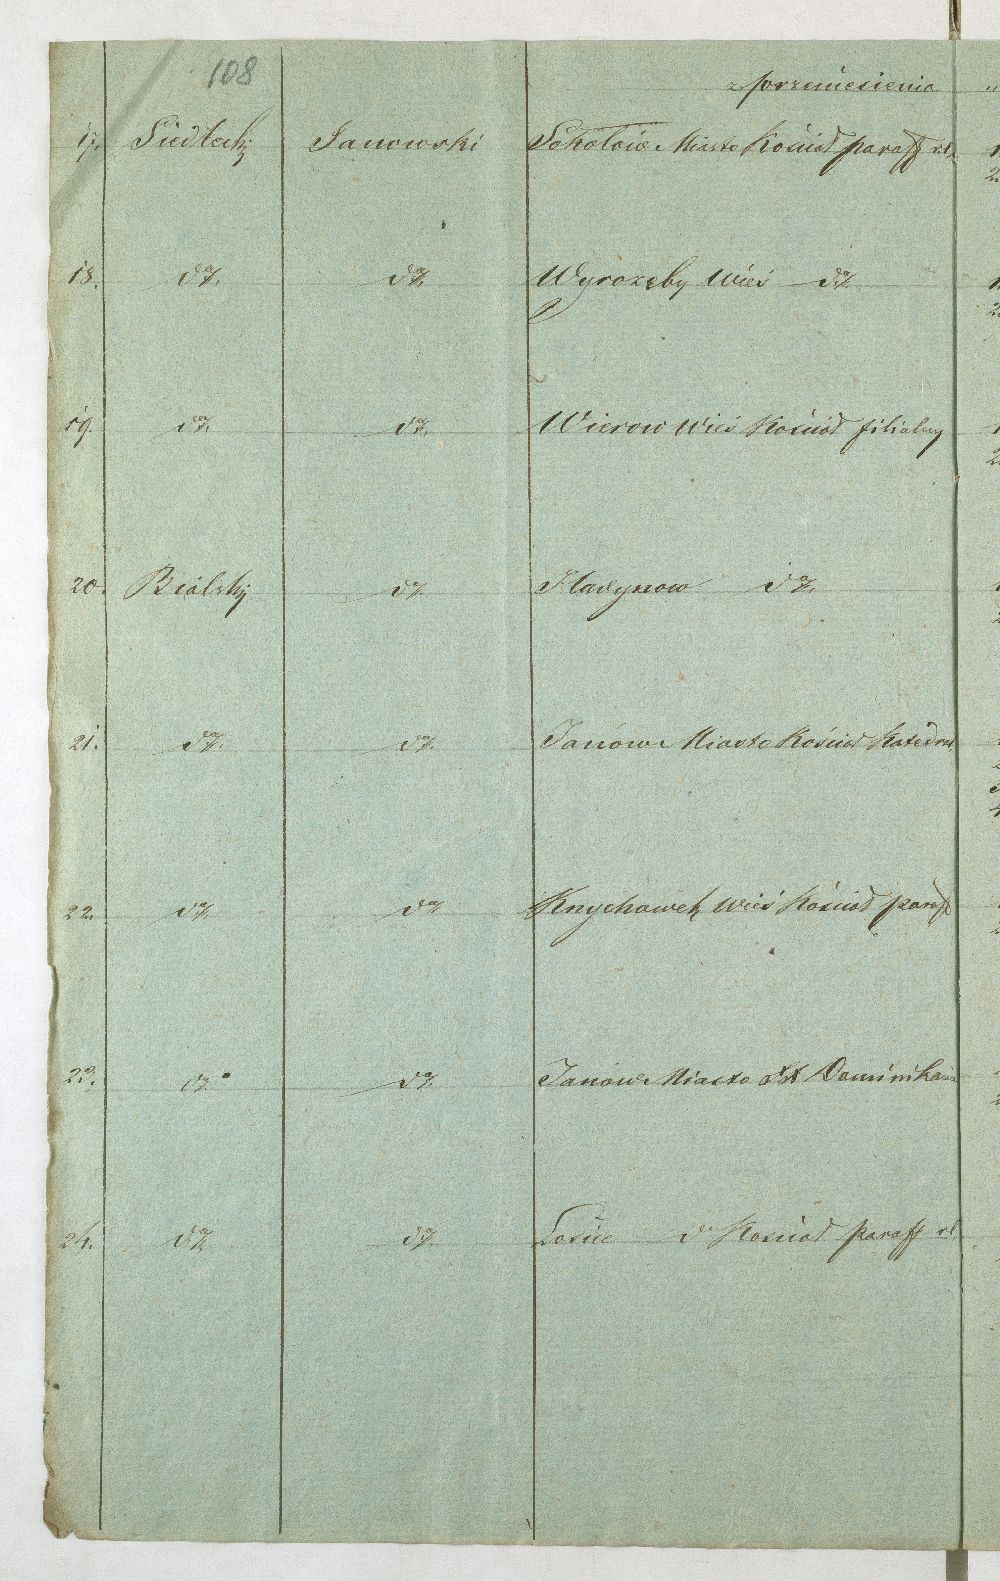 108
z przeniesienia "
17. Siedlecki Janowski Sokołów Miasto Kościoł paraff. r.l. 1
2
18. dº dº Wyrozęby Wieś dº 1
2
19. dº dº Wierow Wieś Kościoł filialny 1
2
20. Bialski dº Hadynow dº
21. dº dº Janów Miasto Kościoł Katedral.
22. dº dº Knychowek Wieś Kościoł paraff
23. dº dº Janów Miasto Dominikan
24. dº dº Łosice dº Kościoł paraff r.l.